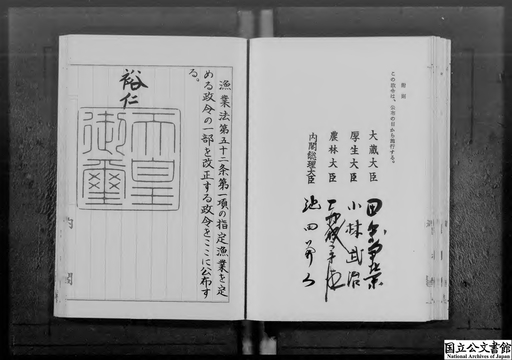 漁業法第五十二条第一項の指定漁業を定
める政令の一部を改正する政令をここに公布す
る。
裕仁
天皇
御璽
内閣
附則
この政令は、公布の日から施行する。
大蔵大臣 田中角榮
厚生大臣 小林武治
農林大臣
内閣総理大臣 池田勇人
国立公文書館
National Archives of Japan